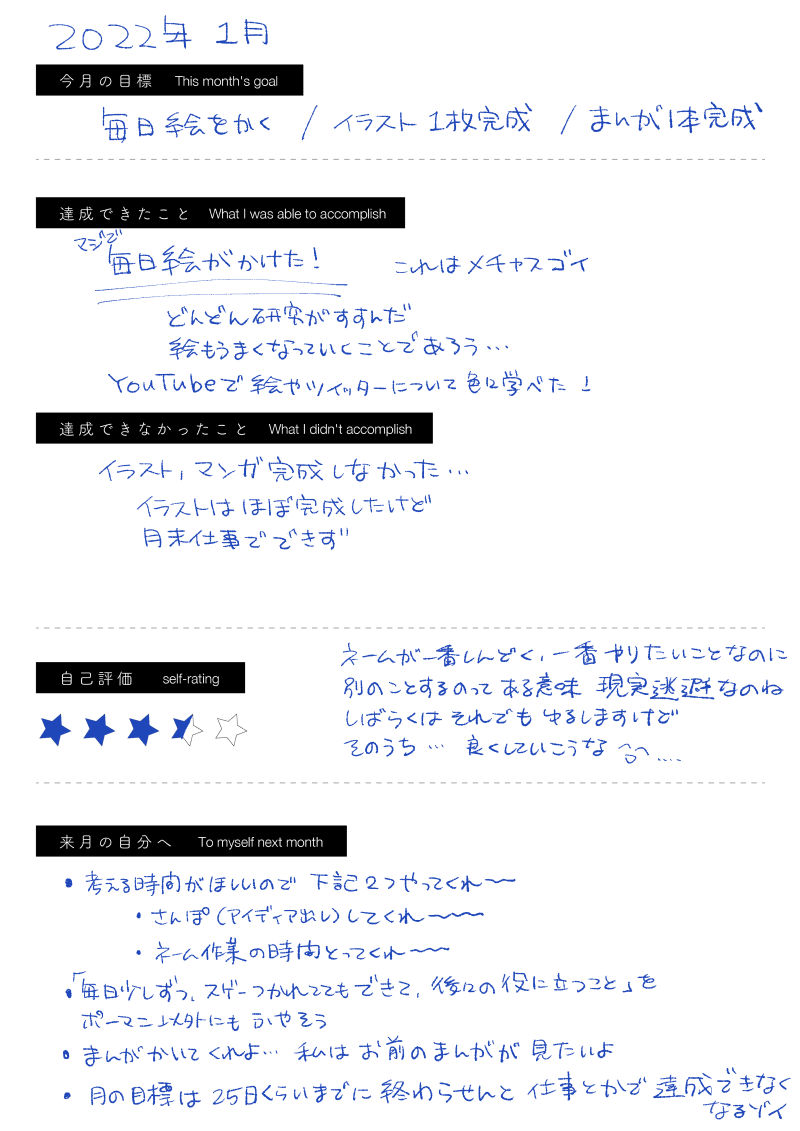 2022年 1月
今月の目標 This month's goal
毎日絵をかく / イラスト1枚完成 / まんが1本完成
達成できたこと What I was able to accomplish
マジで
毎日絵がかけた! これはメチャスゴイ
どんどん研究がすすんだ
絵もうまくなっていくことであろう…
YouTubeで絵やツイッターについて色々学べた!
達成できなかったこと What I didn't accomplish
イラスト,マンガ完成しなかった…
イラストはほぼ完成したけど
月末仕事でできず
自己評価 self-rating
ネームが一番しんどく,一番やりたいことなのに
別のことするのってある意味 現実逃避なのね
しばらくはそれでもゆるしますけど
そのうち… 良くしていこうな
来月の自分へ To myself next month
・考える時間がほしいので 下記2つやってくれ〜〜
・さんぽ(アイディア出し)してくれ〜〜〜
・ネーム作業の時間とってくれ〜〜
・「毎日少しずつ,スゲーつかれててもできて,後々の役に立つこと」を
ポーマニ以外にもふやそう
・まんがかいてくれよ… 私はお前のまんがが見たいよ
・月の目標は25日くらいまでに終わらせんと仕事とかで達成できなく
なるゾイ